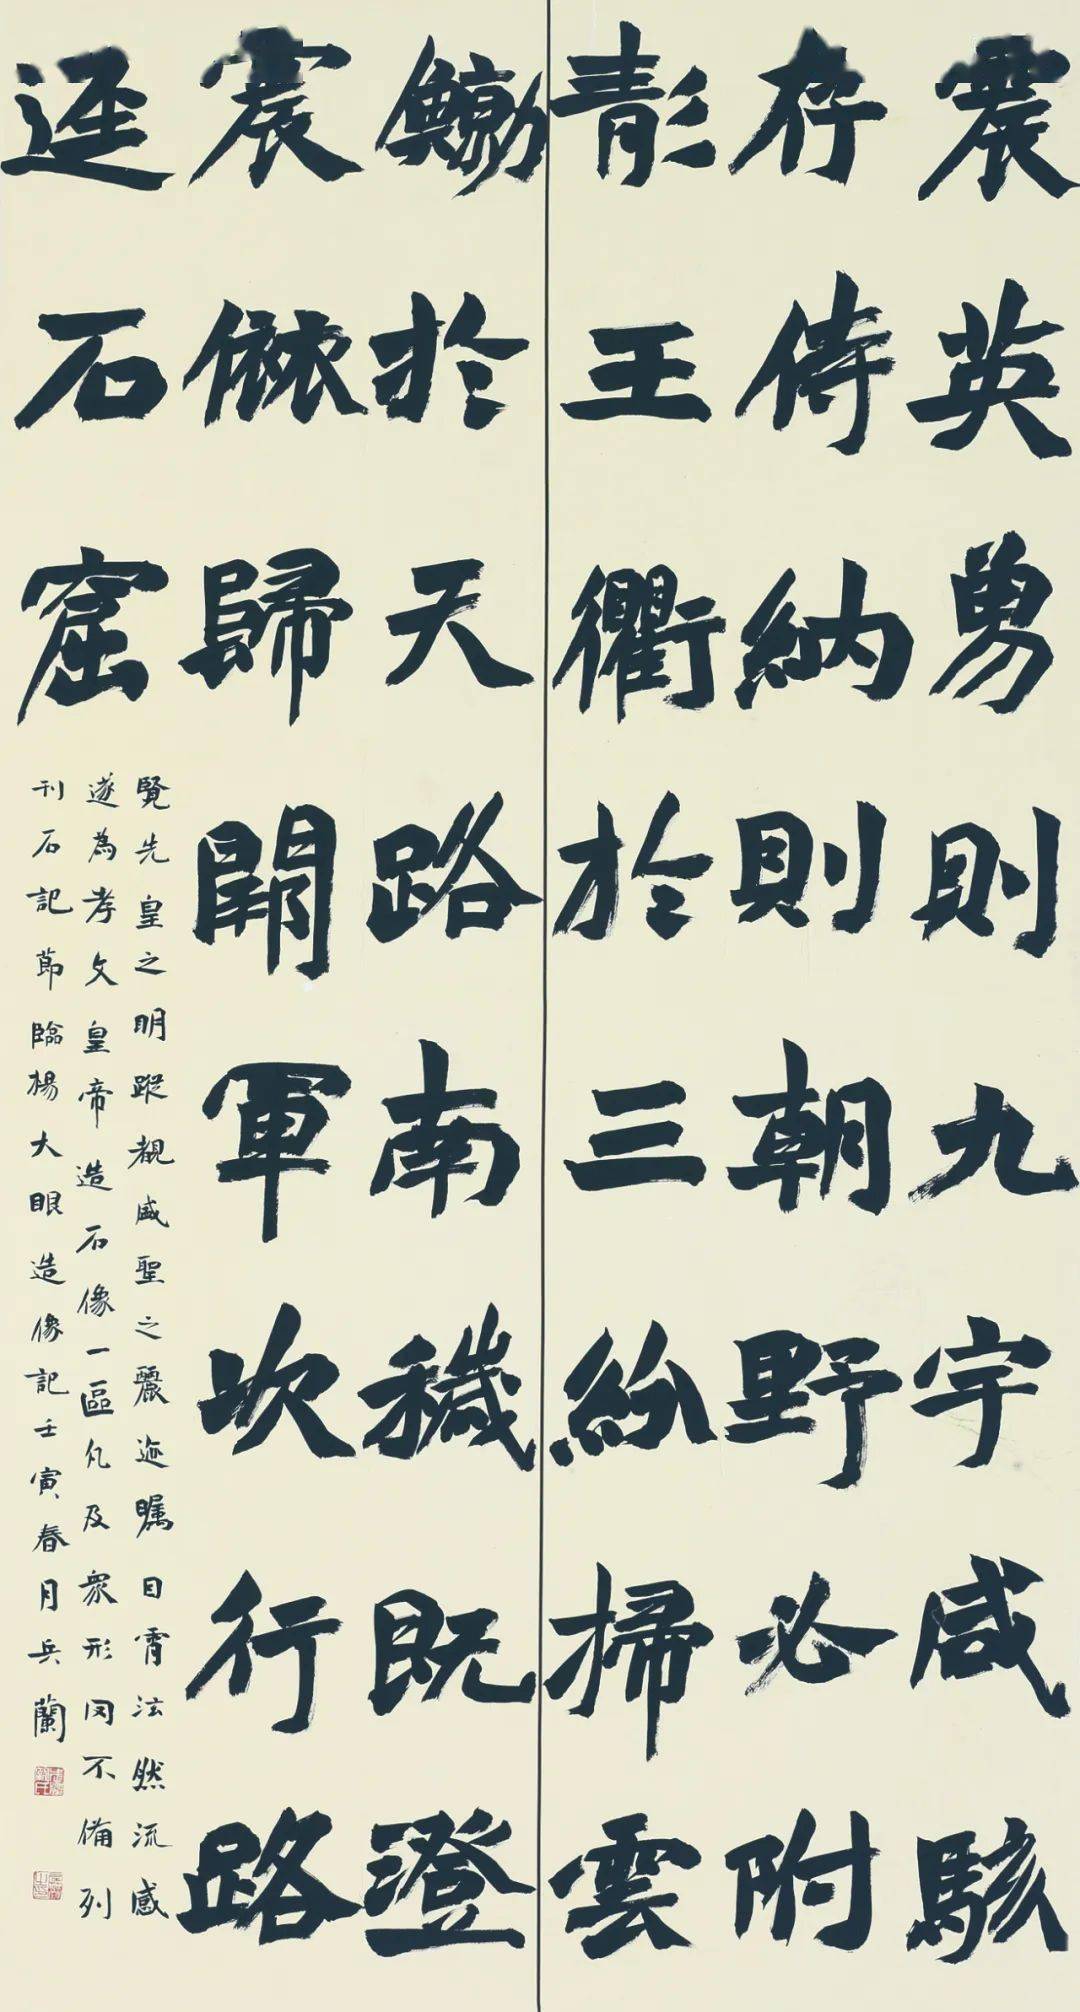 震英勇則九宇咸駭
存侍納則朝野必附
清王衢於三紛掃雲
鯨於天路南穢既澄
震旅歸闕軍次行路
逕石窟
覽先皇之明蹤覩盛聖之麗迹矚目霄泫然流感
遂為孝文皇帝造石像一區凡及眾形罔不備列
刊石記節臨楊大眼造像記壬寅春月兵蘭